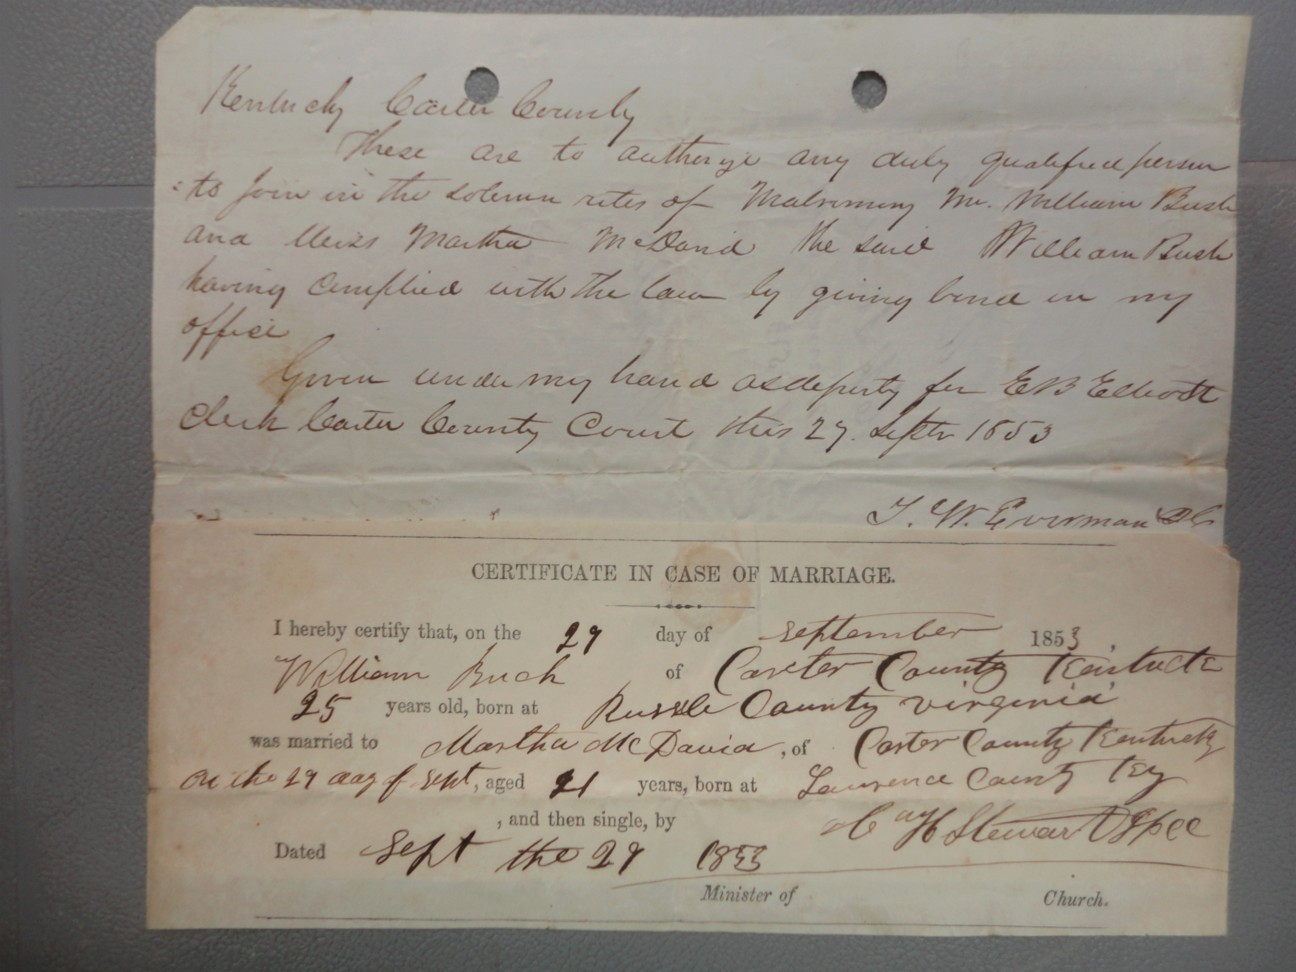 Kentucky Carter County
These are to authorize any duly qualified person
to Join in the solemn rites of Matrimony Mr. William Bush
and Miss Martha McDavid the said William Bush
having complied with the law by giving bond in my
office
Given under my hand as deputy for E B Elliott
Clerk Carter County Court this 27. Septr 1853
T. W. Everman DC
CERTIFICATE IN CASE OF MARRIAGE.
I hereby certify that, on the 29 day of September 1853
William Bush of Carter County Kentucky
25 years old, born at Russle County virginia
was married to Martha McDavid, of Carter County Kentucky
on the 29 day of Sept, aged 21 years, born at Lawrence County Ky
, and then single, by H Stewart
Dated Sept the 29 1853
Minister of Church.